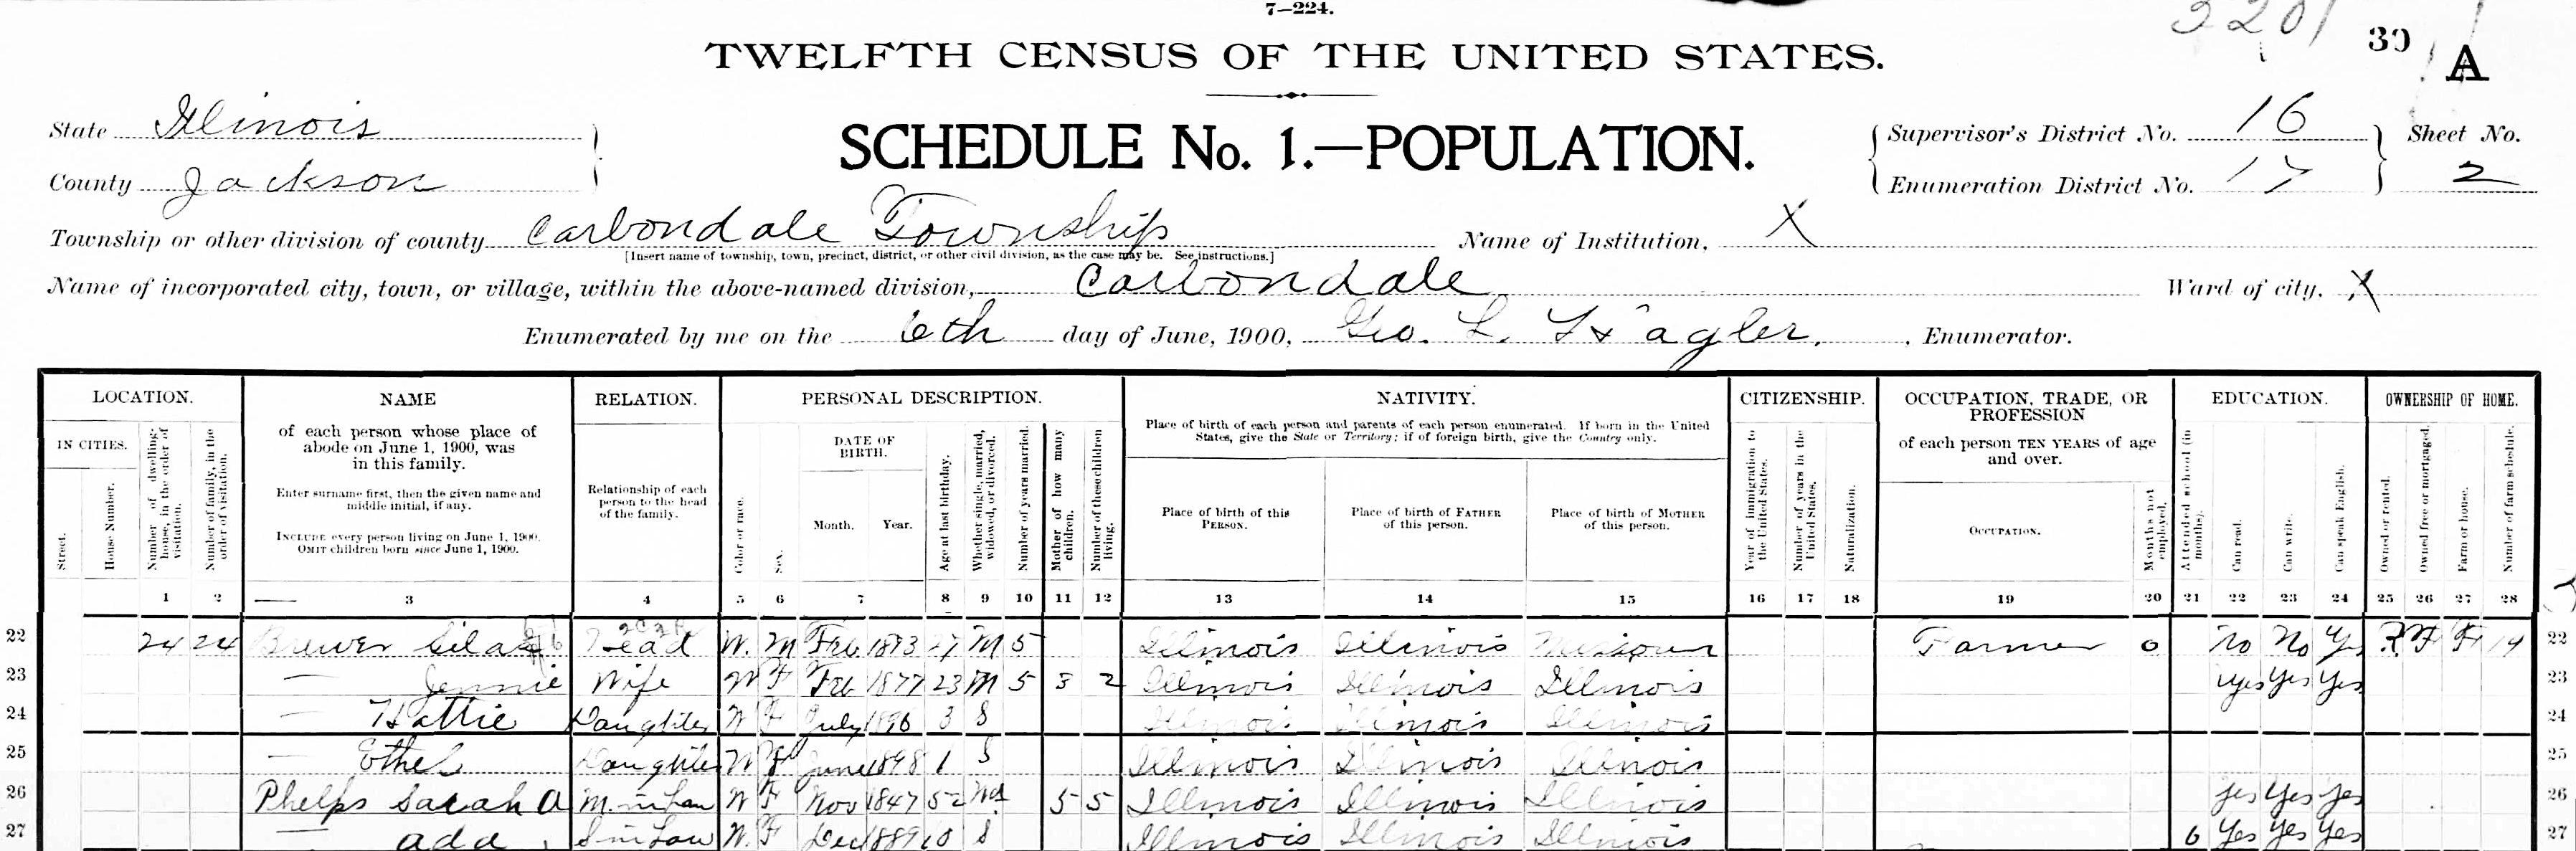 7—224.
3201
30 A
TWELFTH CENSUS OF THE UNITED STATES.
State Illinois
County Jackson
SCHEDULE No. 1.—POPULATION.
Supervisor's District No. 16
Enumeration District No. 17
Sheet No.
2
Township or other division of county Carbondale Township
Name of Institution, X
[Insert name of township, town, precinct, district, or other civil division, as the case may be. See instructions.]
Name of incorporated city, town, or village, within the above-named division, Carbondale
Ward of city, X
Enumerated by me on the 6th day of June, 1900, Geo. L. , Enumerator.
LOCATION.
IN CITIES.
Street.
House Number.
Number of dwelling-house, in the order of visitation.
Number of family, in the order of visitation.
NAME
of each person whose place of
abode on June 1, 1900, was
in this family.
Enter surname first, then the given name and
middle initial, if any.
INCLUDE every person living on June 1, 1900.
OMIT children born since June 1, 1900.
RELATION.
Relationship of each
person to the head
of the family.
PERSONAL DESCRIPTION.
Color or race.
Sex.
DATE OF
BIRTH.
Month. Year.
Age at last birthday.
Whether single, married, widowed, or divorced.
Number of years married.
Mother of how many children.
Number of these children living.
NATIVITY.
Place of birth of each person and parents of each person enumerated. If born in the United
States, give the State or Territory; if of foreign birth, give the Country only.
Place of birth of this
PERSON.
Place of birth of FATHER
of this person.
Place of birth of MOTHER
of this person.
CITIZENSHIP.
Year of immigration to the United States.
Number of years in the United States.
Naturalization.
OCCUPATION, TRADE, OR
PROFESSION
of each person TEN YEARS of age
and over.
OCCUPATION.
Months not employed.
EDUCATION.
Attended school (in months).
Can read.
Can write.
Can speak English.
OWNERSHIP OF HOME.
Owned or rented.
Owned free or mortgaged.
Farm or house.
Number of farm schedule.
1 2 3 4 5 6 7 8 9 10 11 12 13 14 15 16 17 18 19 20 21 22 23 24 25 26 27 28
22 24 24 Brewer Silas Head W. M Feb 1873 27 M 5 Illinois Illinois Missouri Farmer 0 No No Yes R F 14 22
23 — Jennie Wife W F Feb 1877 23 M 5 3 2 Illinois Illinois Illinois Yes Yes Yes 23
24 — Hattie Daughter W F July 1896 3 S Illinois Illinois Illinois 24
25 — Ethel Daughter W F June 1898 1 S Illinois Illinois Illinois 25
26 Phelps Sarah A M. in Law W F Nov 1847 52 Wd 5 5 Illinois Illinois Illinois Yes Yes Yes 26
27 — Ada S in Law W. F Dec 1889 10 S Illinois Illinois Illinois 6 Yes Yes Yes 27